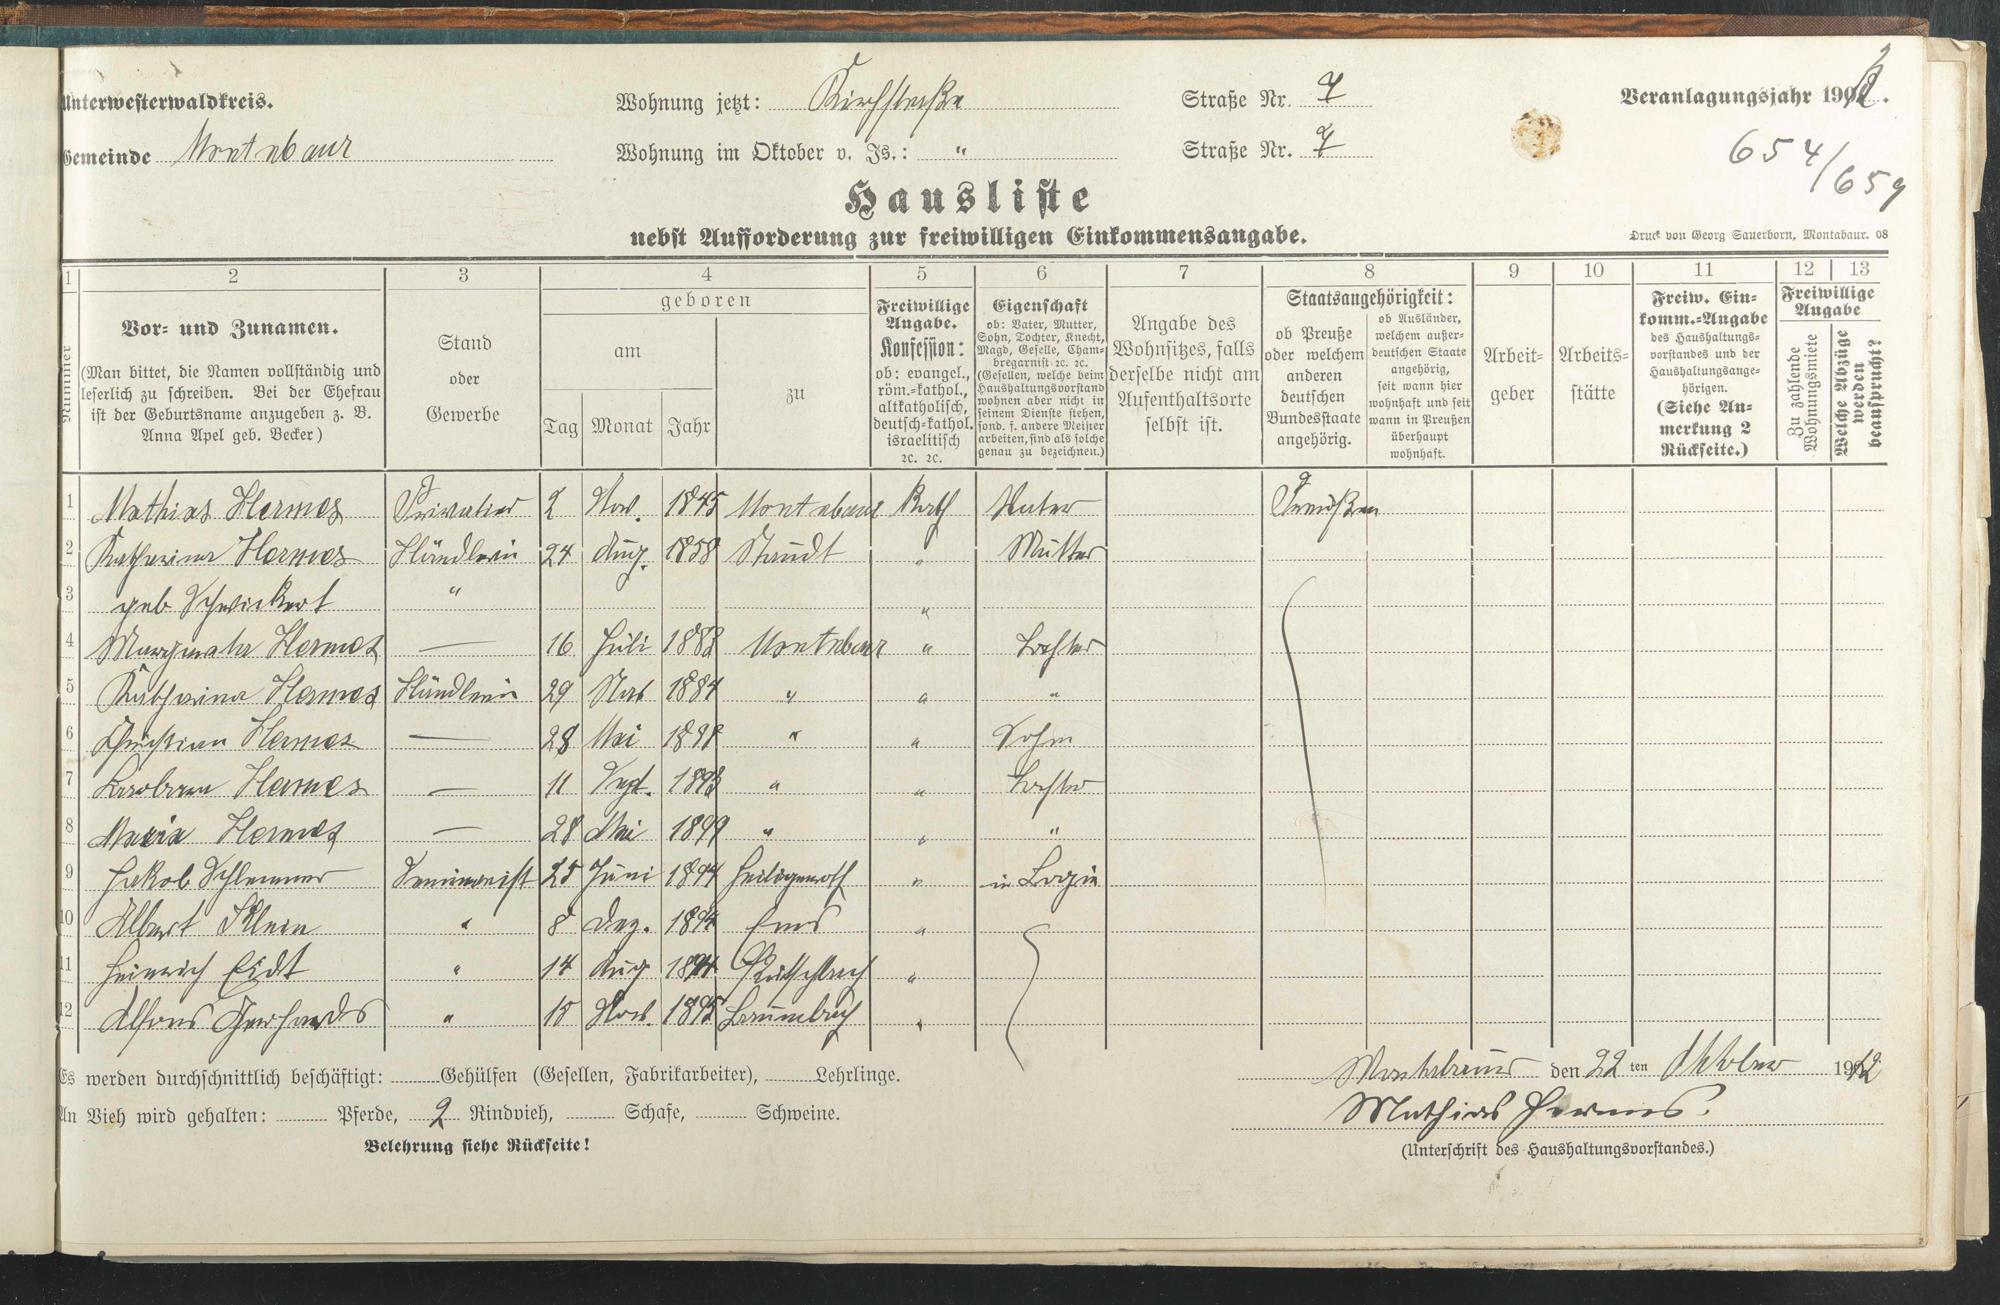 Unterwesterwaldkreis.
Wohnung jetzt: Kirchstraße Straße Nr. 7
Veranlagungsjahr 19
Gemeinde Montabaur
Wohnung im Oktober v. Js.: " Straße Nr. 7
654/659
Hausliste
nebst Aufforderung zur freiwilligen Einkommensangabe.
Druck von Georg Sauerborn, Montabaur. 08
1 2 3 4 5 6 7 8 9 10 11 12 13
Nummer
Vor- und Zunamen.
(Man bittet, die Namen vollständig und
leserlich zu schreiben. Bei der Ehefrau
ist der Geburtsname anzugeben z. B.
Anna Apel geb. Becker)
Stand
oder
Gewerbe
geboren
am
Tag Monat Jahr
zu
Freiwillige
Angabe.
Konfession:
ob: evangel.,
röm.-kathol.,
altkatholisch,
deutsch-kathol.
israelitisch
2c. 2c.
Eigenschaft
ob: Vater, Mutter,
Sohn, Tochter, Knecht,
Magd, Geselle, Cham-
bregarnist 2c. 2c.
(Gesellen, welche beim
Haushaltungsvorstand
wohnen aber nicht in
seinem Dienste stehen,
sond. f. andere Meister
arbeiten, sind als solche
genau zu bezeichnen.)
Angabe des
Wohnsitzes, falls
derselbe nicht am
Aufenthaltsorte
selbst ist.
Staatsangehörigkeit:
ob Preuße
oder welchem
anderen
deutschen
Bundesstaate
angehörig.
ob Ausländer,
welchem außer-
deutschen Staate
angehörig,
seit wann hier
wohnhaft und seit
wann in Preußen
überhaupt
wohnhaft.
Arbeit-
geber
Arbeits-
stätte
Freiw. Ein-
komm.-Angabe
des Haushaltungs-
vorstandes und der
Haushaltungsange-
hörigen.
(Siehe An-
merkung 2
Rückseite.)
Freiwillige
Angabe
Zu zahlende
Wohnungsmiete
Welche Abzüge
werden
beansprucht?
1 Mathias Hermes Privatier 2 Nov. 1845 Montabaur Kath Vater Preußen
2 Katharina Hermes Händlerin 24 Aug. 1858 Staudt " Mutter
3 geb Schwickert " "
4 Margaretha Hermes — 16 Juli 1883 Montabaur " Tochter
5 Katharina Hermes Händlerin 29 Nov 1884 " " "
6 Christian Hermes — 28 Mai 1891 " " Sohn
7 Barbara Hermes — 11 Sept. 1893 " " Tochter
8 Maria Hermes — 28 Mai 1899 " " "
9 Jakob Schlemmer Seminarist 25 Juni 1894 Heiligenroth " in Logie
10 Albert Klein " 8 Dez. 1894 Ems "
11 Heinrich Eidt " 14 Aug 1894 "
12 Alfons Gerhards " 15 Nov. 1895 Baumbach "
Es werden durchschnittlich beschäftigt: Gehülfen (Gesellen, Fabrikarbeiter), Lehrlinge.
Montabaur den 22 ten Oktober 1912
An Vieh wird gehalten: Pferde, 2 Rindvieh, Schafe, Schweine.
Mathias Hermes.
Belehrung siehe Rückseite!
(Unterschrift des Haushaltungsvorstandes.)